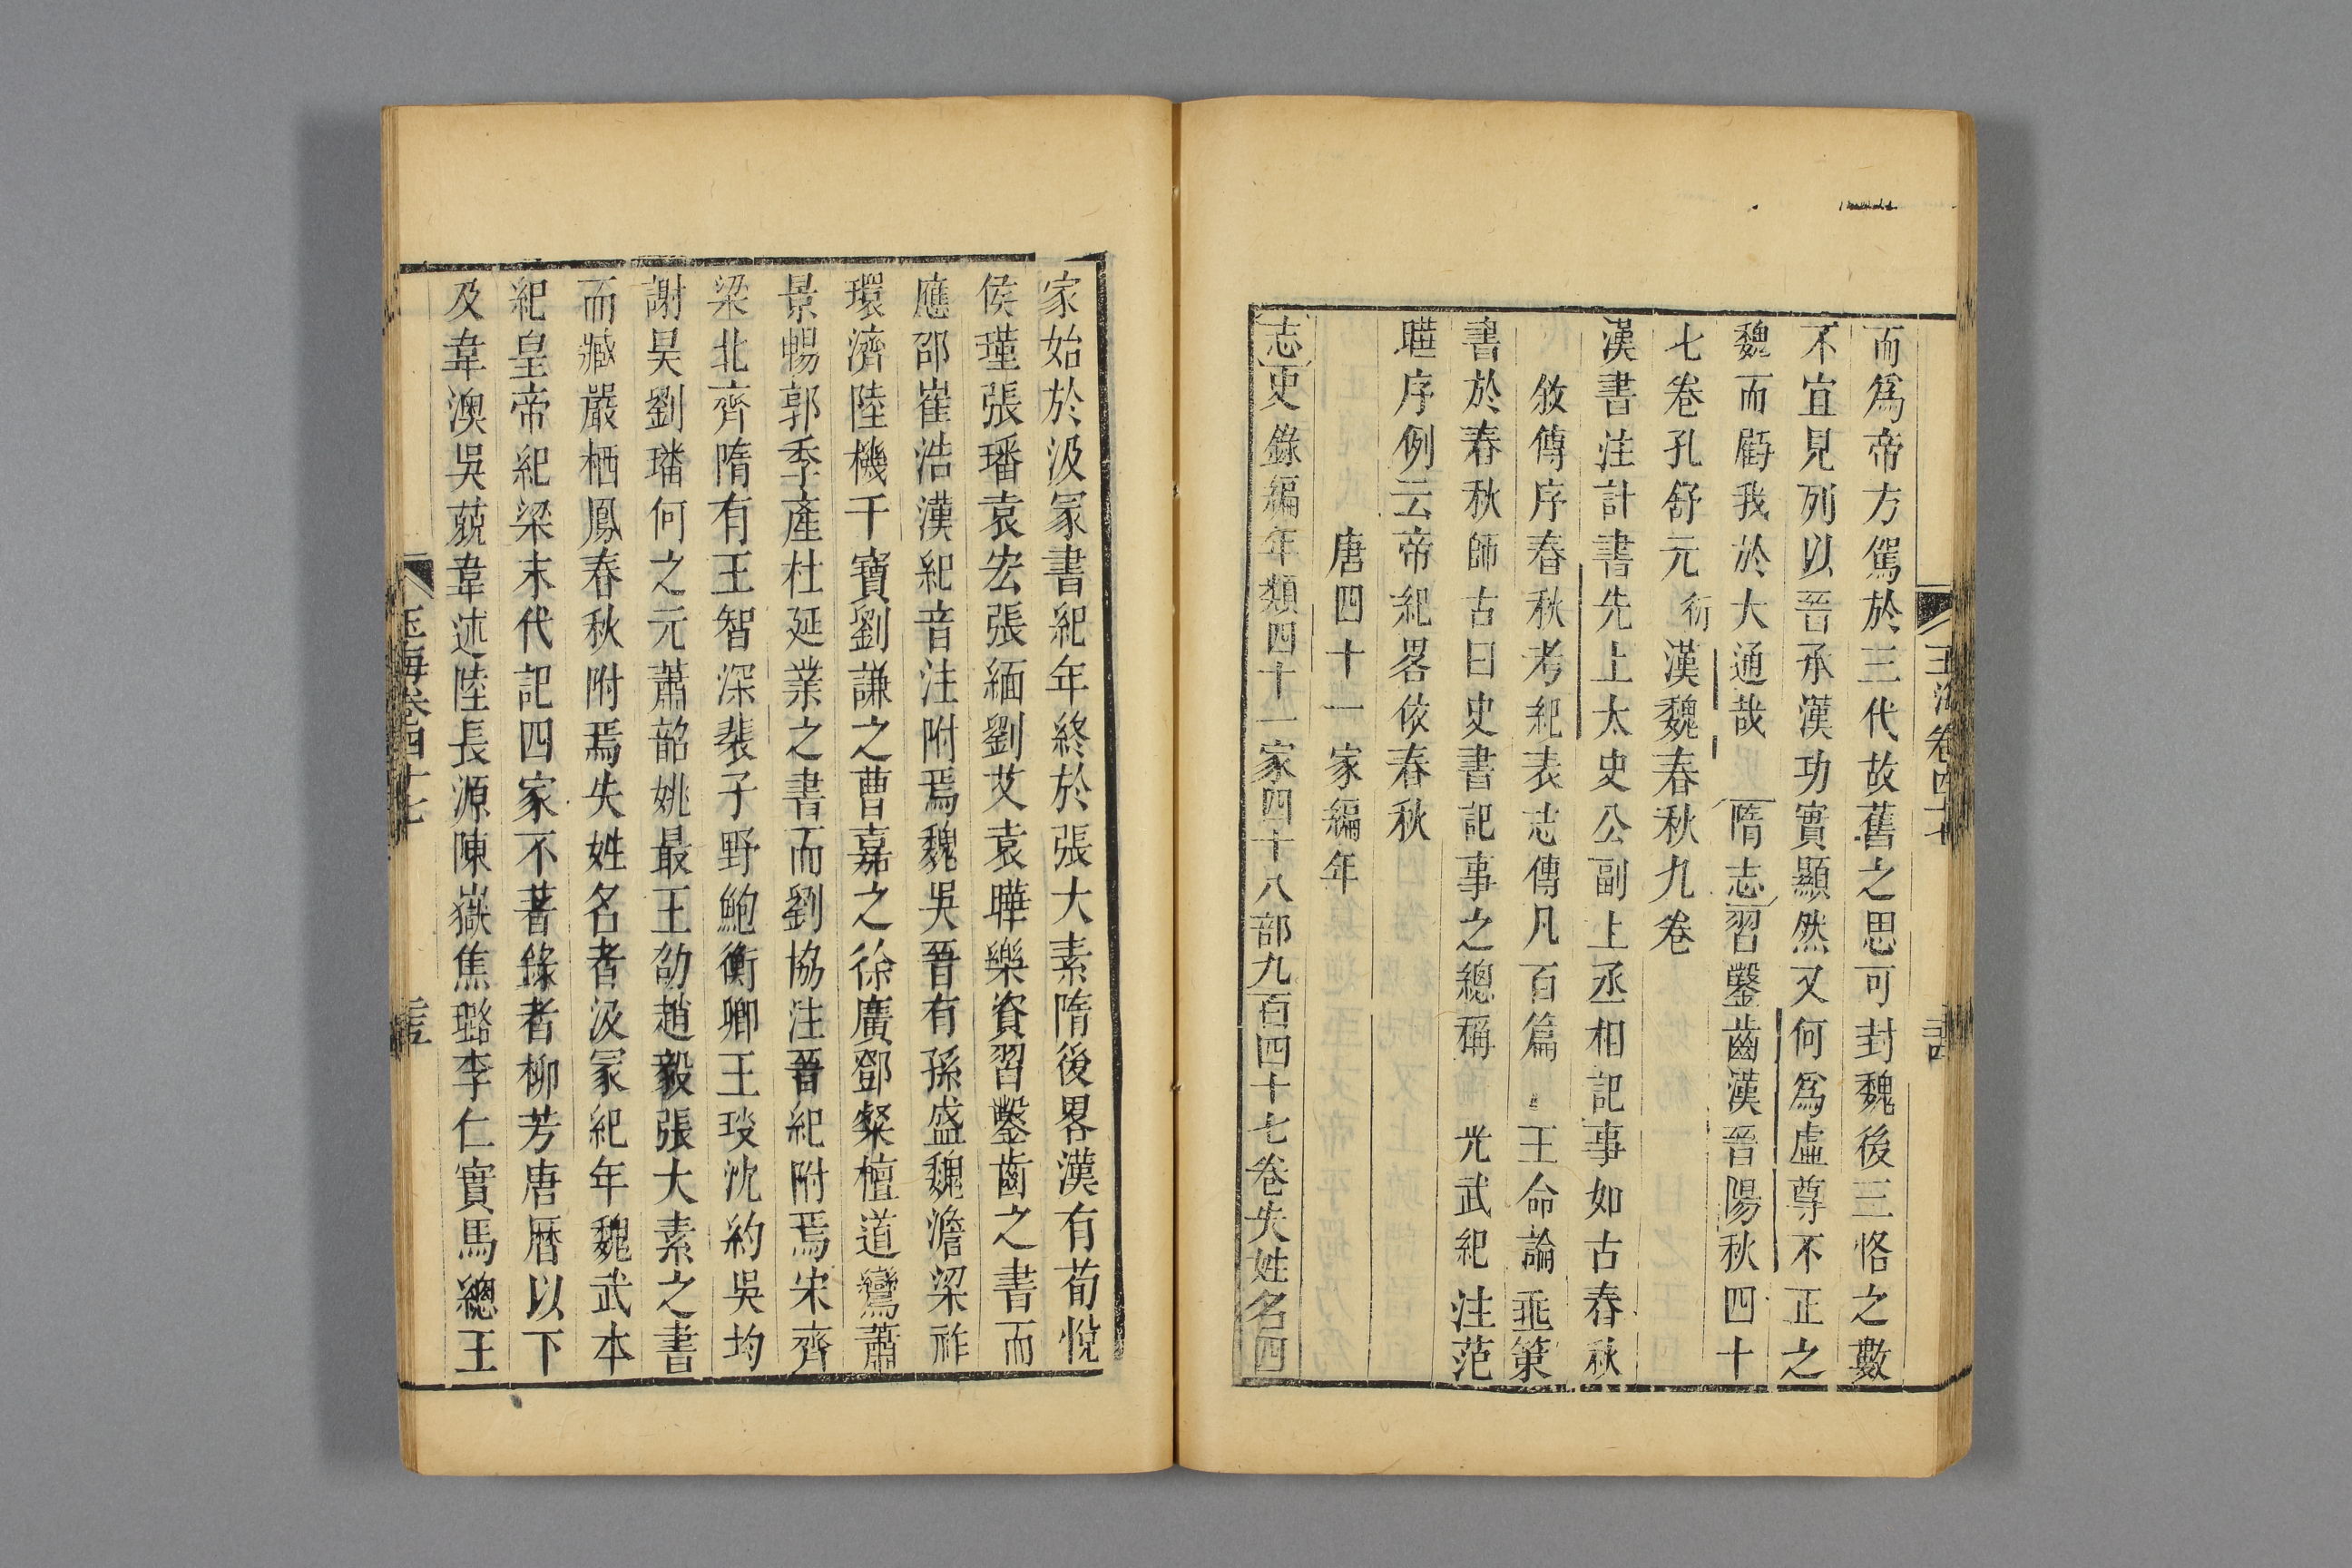 而爲帝方駕於三代故舊之思可封魏後三恪之數
不宜見列以晉承漢功實顯然又何爲虛尊不正之
魏而虧我於大通哉 隋志習鑿齒漢晉陽秋四十
七卷孔舒元衍漢魏春秋九卷
漢書注計書先上太史公副上丞相記事如古春秋
敘傳序春秋考紀表志傳凡百篇 王命論 亟策
書於春秋師古曰史書記事之總稱 光武紀注范
曄序例云帝紀畧依春秋
唐四十一家編年
志史錄編年類四十一家四十八部九百四十七卷失姓名四
家始於汲冢書紀年終於張大素隋後畧漢有荀悅
侯瑾張璠袁宏張緬劉艾袁曄樂資習鑿齒之書而
應邵崔浩漢紀音注附焉魏吳晉有孫盛魏澹梁祚
環濟陸機干寶劉謙之曹嘉之徐廣鄧粲檀道鸞蕭
景暢郭季產杜延業之書而劉協注晉紀附焉宋齊
梁北齊隋有王智深裴子野鮑衡卿王琰沈約吳均
謝昊劉璠何之元蕭韶姚最王劭趙毅張大素之書
而臧嚴栖鳳春秋附焉失姓名者汲冢紀年魏武本
紀皇帝紀梁末代記四家不著錄者柳芳唐曆以下
及韋澳吳兢韋述陸長源陳嶽焦璐李仁實馬總王
玉海卷四十七